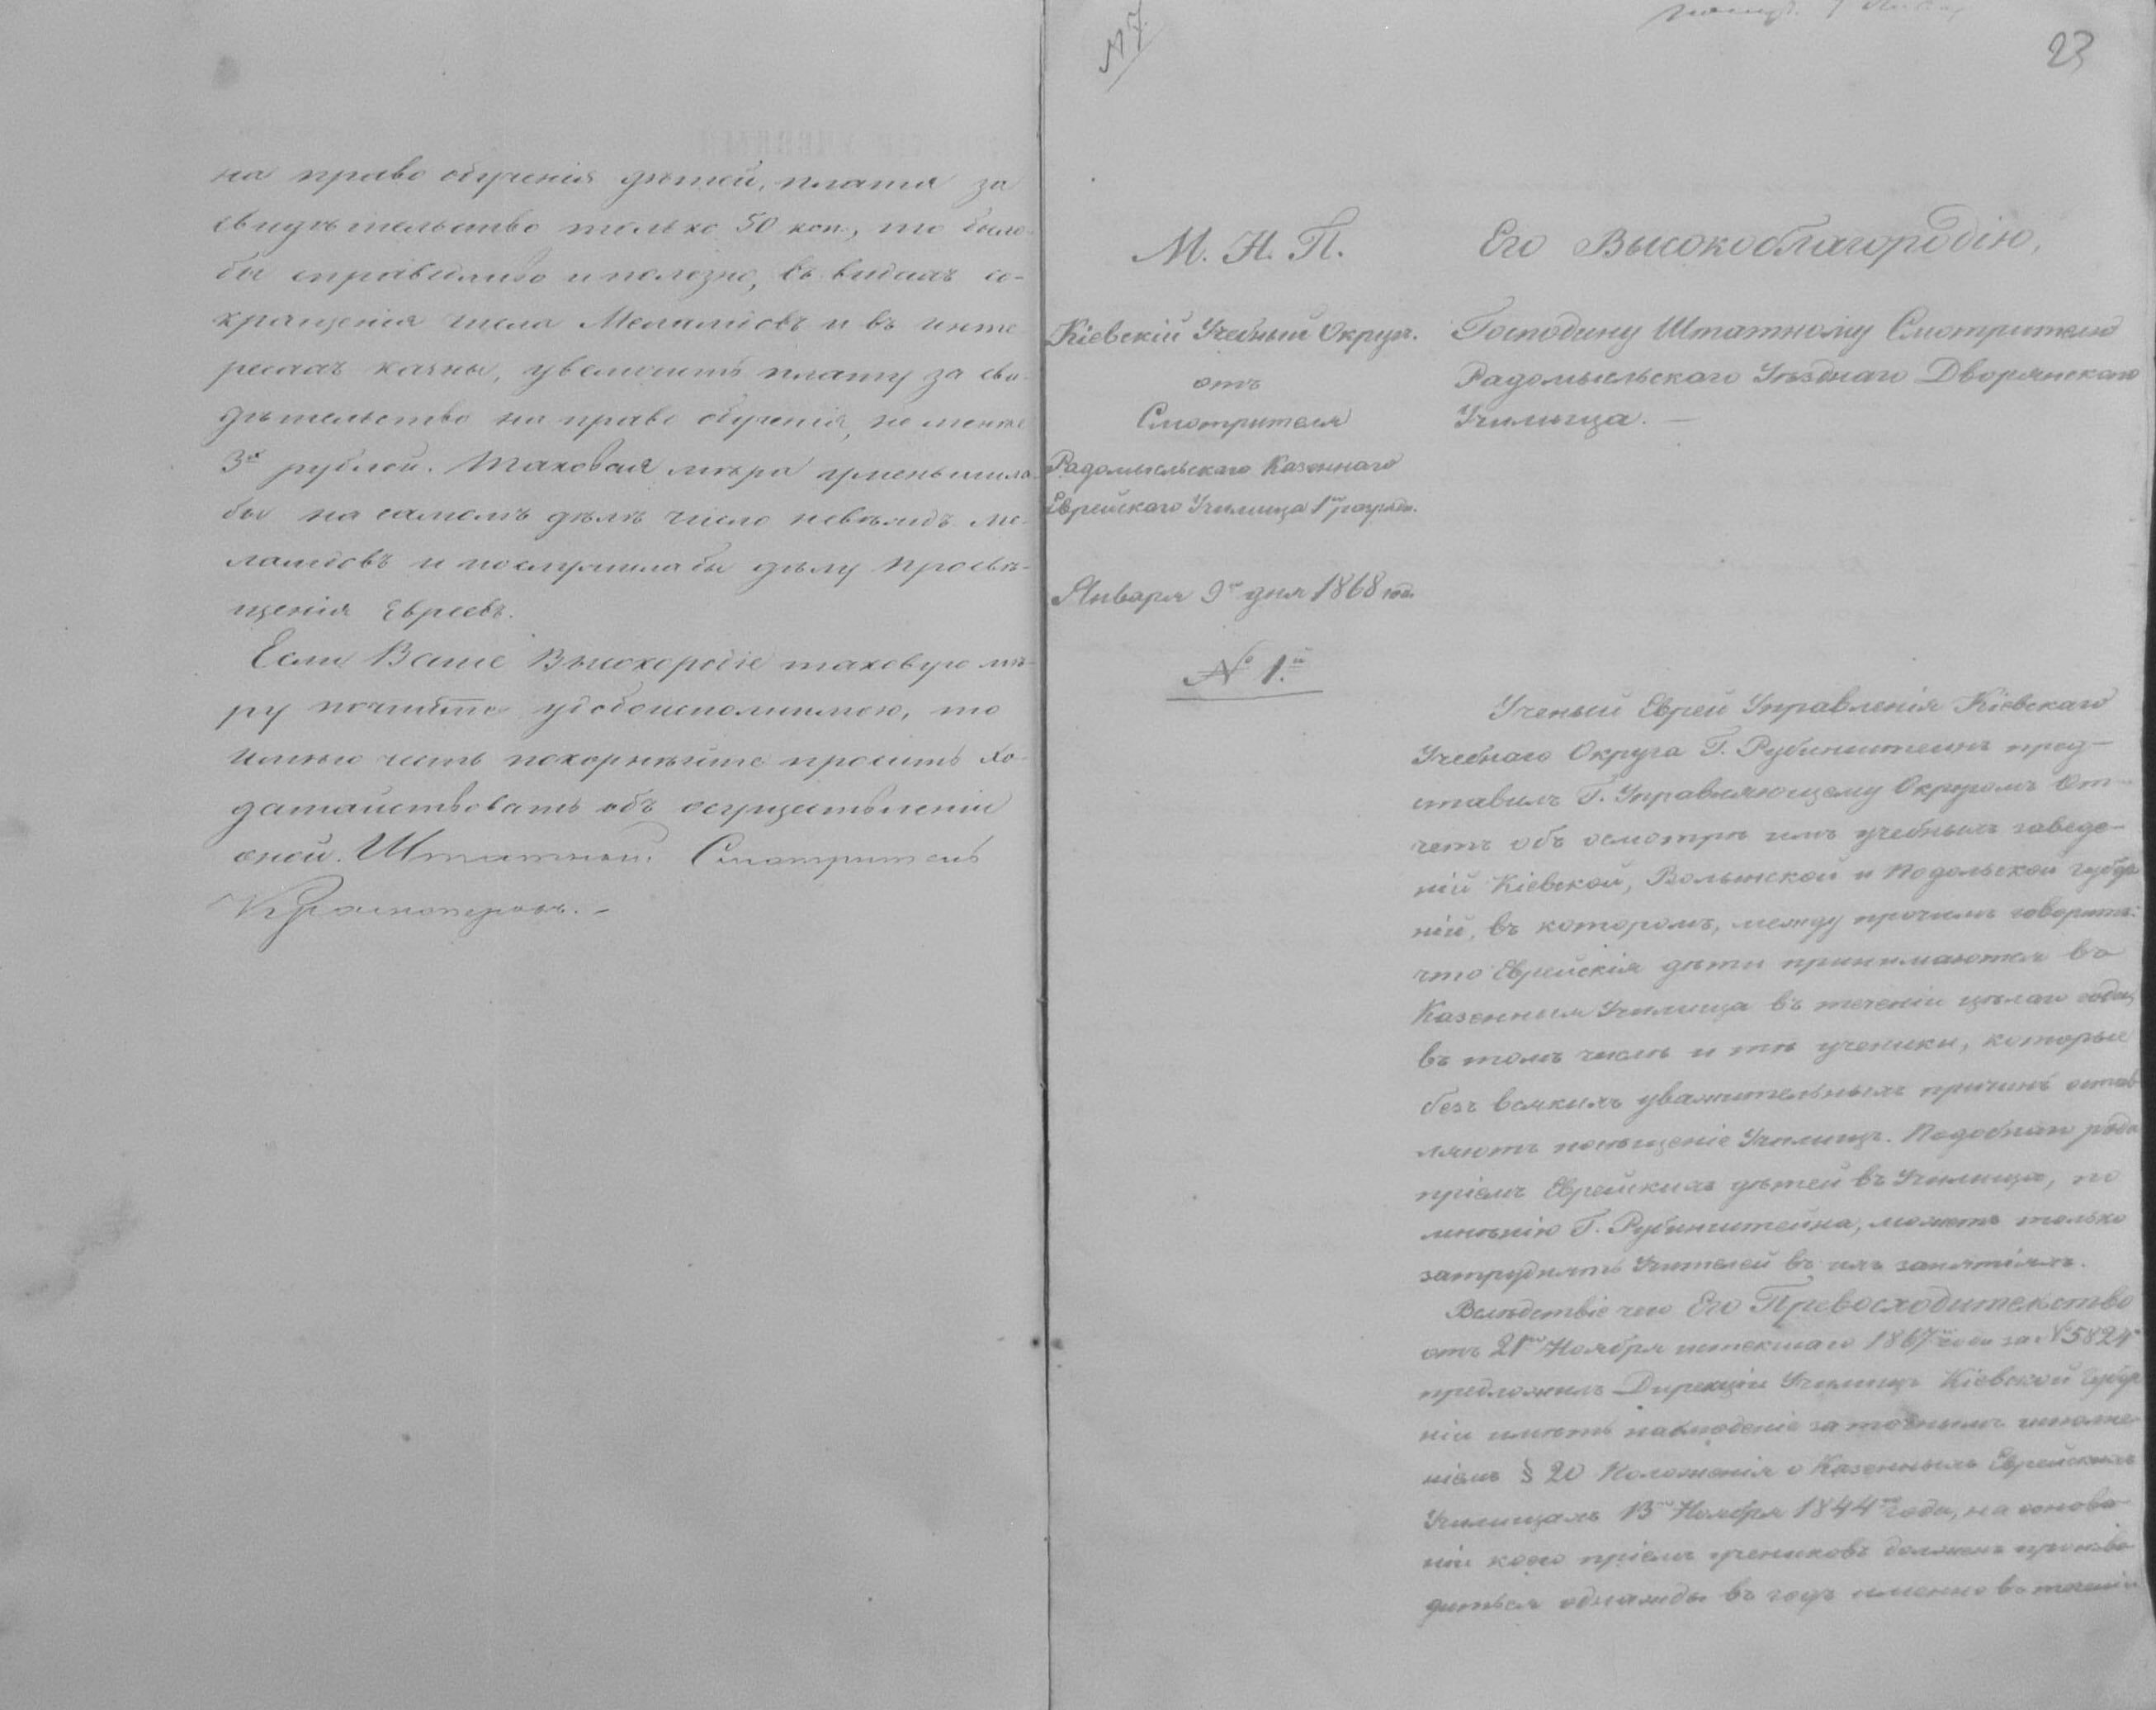 на право обученія дѣтей, платя за
свидѣтельство только 50 коп., то было
бы справедливо и полезно, въ видахъ со-
кращенія числа Меламдовъ и въ инте
ресахъ казны, увеличить плату за сви-
дѣтельство на право обученія, не менѣе
3х рублей. Таковая мѣра уменьшила
бы на самомъ дѣлѣ число невѣждъ ме-
ламдовъ и послужила бы дѣлу просвѣ-
щенія Евреевъ.
Если Ваше Высокородіе таковую мѣ-
ру почтите удобоисполнимою, то
имѣю честь покорнѣйше просить хо-
датайствовать объ осуществленіи
оной. Штатный Смотритель
№ 7
23
М. Н. П.
Кіевскій Учебный Округъ.
отъ
Смотрителя
Радомысльскаго Казеннаго
Еврейскаго Училища 1го разряда.
Января 9го дня 1868 года
№ 1.й
Его Высокоблагородію,
Господину Штатному Смотрителю
Радомысльскаго Уѣзднаго Дворянскаго
Училища. —
Ученый Еврей Управленія Кіевскаго
Учебнаго Округа Г. Рубинштейнъ пред-
ставилъ Г. Управляющему Округомъ От-
четъ объ осмотрѣ имъ учебныхъ заведе-
ній Кіевской, Волынской и Подольской губер
ній, въ которомъ, между прочимъ говоритъ:
что Еврейскія дѣти принимаются въ
Казенныя Училища въ теченіи цѣлаго года,
въ томъ числѣ и тѣ ученики, которые
безъ всякихъ уважительныхъ причинъ остав
ляютъ посѣщеніе Училищъ. Подобнаго рода
пріемъ Еврейскихъ дѣтей въ Училища, по
мнѣнію Г. Рубинштейна, можетъ только
затруднять Учителей въ ихъ занятіяхъ.
Вслѣдствіе чего Его Превосходительство
отъ 21го Ноября истекшаго 1867го года за № 5824
предложилъ Дирекціи Училищъ Кіевской Губер
ніи имѣть наблюденіе за точнымъ исполне
ніемъ § 20 Положенія о Казенныхъ Еврейскихъ
Училищахъ 13го Ноября 1844го года, на основа
ніи коего пріемъ учениковъ долженъ произво
диться однажды въ годъ именно въ теченіи